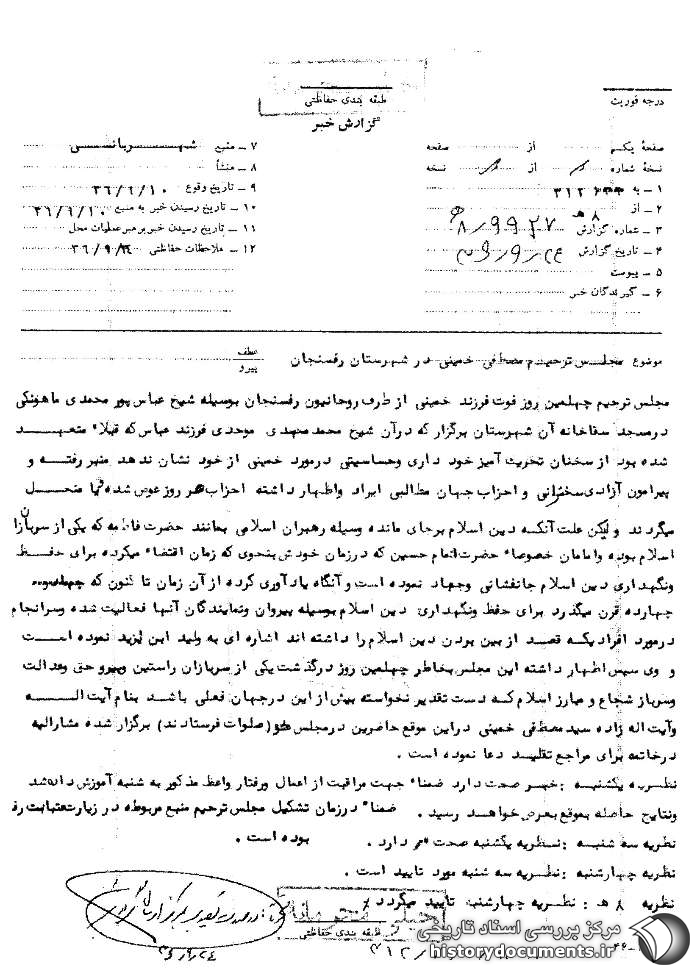 طبقه بندی حفاظتی
گزارش خبر
درجه فوریت
صفحه یکم از صفحه
نسخه شماره از نسخه
۱ ـ به ۳۱۲
۲ ـ از ۸ هـ
۳ ـ عماره گزارش ۸/۹۹۲۷ هـ
۴ ـ تاریخ گزارش
۵ ـ پیوست
۶ ـ گیرندگان خبر
۷ ـ منبع شهربانی
۸ ـ منشأ
۹ ـ تاریخ وقوع ۳۶/۹/۱۰
۱۰ ـ تاریخ رسیدن خبر به منبع ۳۶/۹/۱۰
۱۱ ـ تاریخ رسیدن خبر برهبر عملیات محل
۱۲ ـ ملاحظات حفاظتی
موضوع مجلس ترحیم مصطفی خمینی در شهرستان رفسنجان
عطف
پیرو
مجلس ترحیم چهلمین روز فوت فرزند خمینی از طرف روحانیون رفسنجان بوسیله شیخ عباس پور محمدی ماهونکی
در مسجد سقاخانه آن شهرستان برگزار که در آن شیخ محمد مهدی موحدی فرزند عباس که قبلاً متعهد
شده بود از سخنان تحریک آمیز خود داری وحساسیتی در مورد خمینی از خود نشان ندهد منبر رفته و
پیرامون آزادی سخنرانی و احزاب جهان مطالبی ایراد واظهار داشته احزاب هر روز عوض شده منحل
میگردند ولیکن علت آنکه دین اسلام برجای مانده وسیله رهبران اسلامی بمانند حضرت فاطمه که یکی از سربازان
اسلام بوده وامامان خصوصاً حضرت امام حسین که در زمان خودش بنحوی که زمان اقتضاء میکرده برای حفظ
ونگهداری دین اسلام جانفشانی وجهاد نموده است و آنگاه یادآوری کرده از آن زمان تا کنون که
چهارده قرن میگذرد برای حفظ ونگهداری دین اسلام بوسیله پیروان ونمایندگان آنها فعالیت شده وسرانجام
در مورد افرادیکه قصد از بین بردن دین اسلام را داشته اند اشاره ای به ولید ابن یزید نموده است
و وی سپس اظهار داشته این مجلس بخاطر چهلمین روز درگذشت یکی از سربازان راستین وپیرو حق وعدالت
وسرباز شجاع و مبارز اسلام که دست تقدیر نخواسته بیش از این در جهان فعلی باشد بنام آیت اله
وآیت اله زاده سید مصطفی خمینی در این موقع حاضرین در مجلس (صلوات فرستادند) برگزار شده مشارالیه
در خاتمه برای مراجع تقلید دعا نموده است .
نظریه یکشنبه : خبر صحت دارد ضمناً جهت مراقبت از اعمال ورفتار واعظ مذکور به شنبه آموزش داده شد
ونتایج حاصله بموقع بعرض خواهد رسید . ضمناً در زمان تشکیل مجلس ترحیم منبع مربوطه در زیارت عتبات
بوده است .
نظریه سه شنبه : نظریه یکشنبه صحت دارد .
نظریه چهارشنبه : نظریه سه شنبه مورد تایید است .
نظریه ۸ هـ : نظریه چهارشنبه تایید میگردد
خیلی محرمانه
طبقه بندی حفاظتی
مرکز بررسی اسناد تاریخی
historydocuments.ir